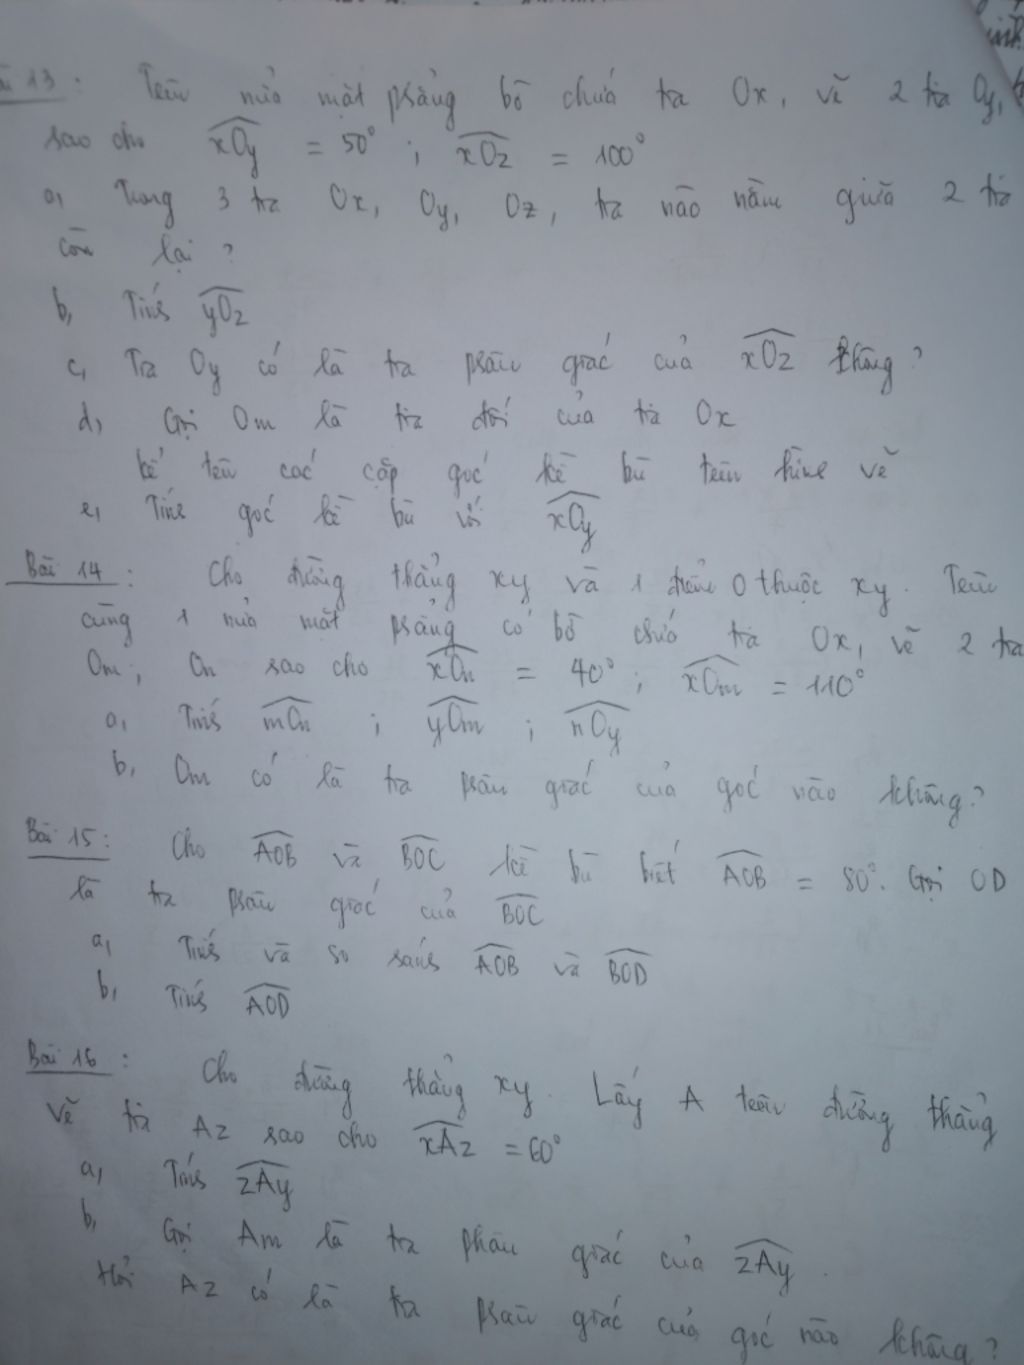 13: Trên nửa mặt phẳng bờ chứa tia Ox, vẽ 2 tia Oy,
sao cho xOy = 50° ; xOz = 100°
a, Trong 3 tia Ox, Oy, Oz, tia nào nằm giữa 2 tia
còn lại ?
b, Tính yOz
c, Tia Oy có là tia phân giác của xOz không ?
d, Gọi Om là tia đối của tia Ox
kể tên các cặp góc kề bù trên hình vẽ
e, Tính góc kề bù với xOy
Bài 14 : Cho đường thẳng xy và 1 điểm O thuộc xy. Trên
cùng 1 nửa mặt phẳng có bờ chứa tia Ox, vẽ 2 tia
Om; On sao cho xOn = 40° ; xOm = 110°
a, Tính mOn ; yOm ; nOy
b, Om có là tia phân giác của góc nào không?
Bài 15: Cho AOB và BOC kề bù biết AOB = 80°. Gọi OD
là tia phân giác của BOC
a, Tính và so sánh AOB và BOD
b, Tính AOD
Bài 16 : Cho đường thẳng xy. Lấy A trên đường thẳng
vẽ tia Az sao cho xAz = 60°
a, Tính zAy
b, Gọi Am là tia phân giác của zAy.
Hỏi Az có là tia phân giác của góc nào không?